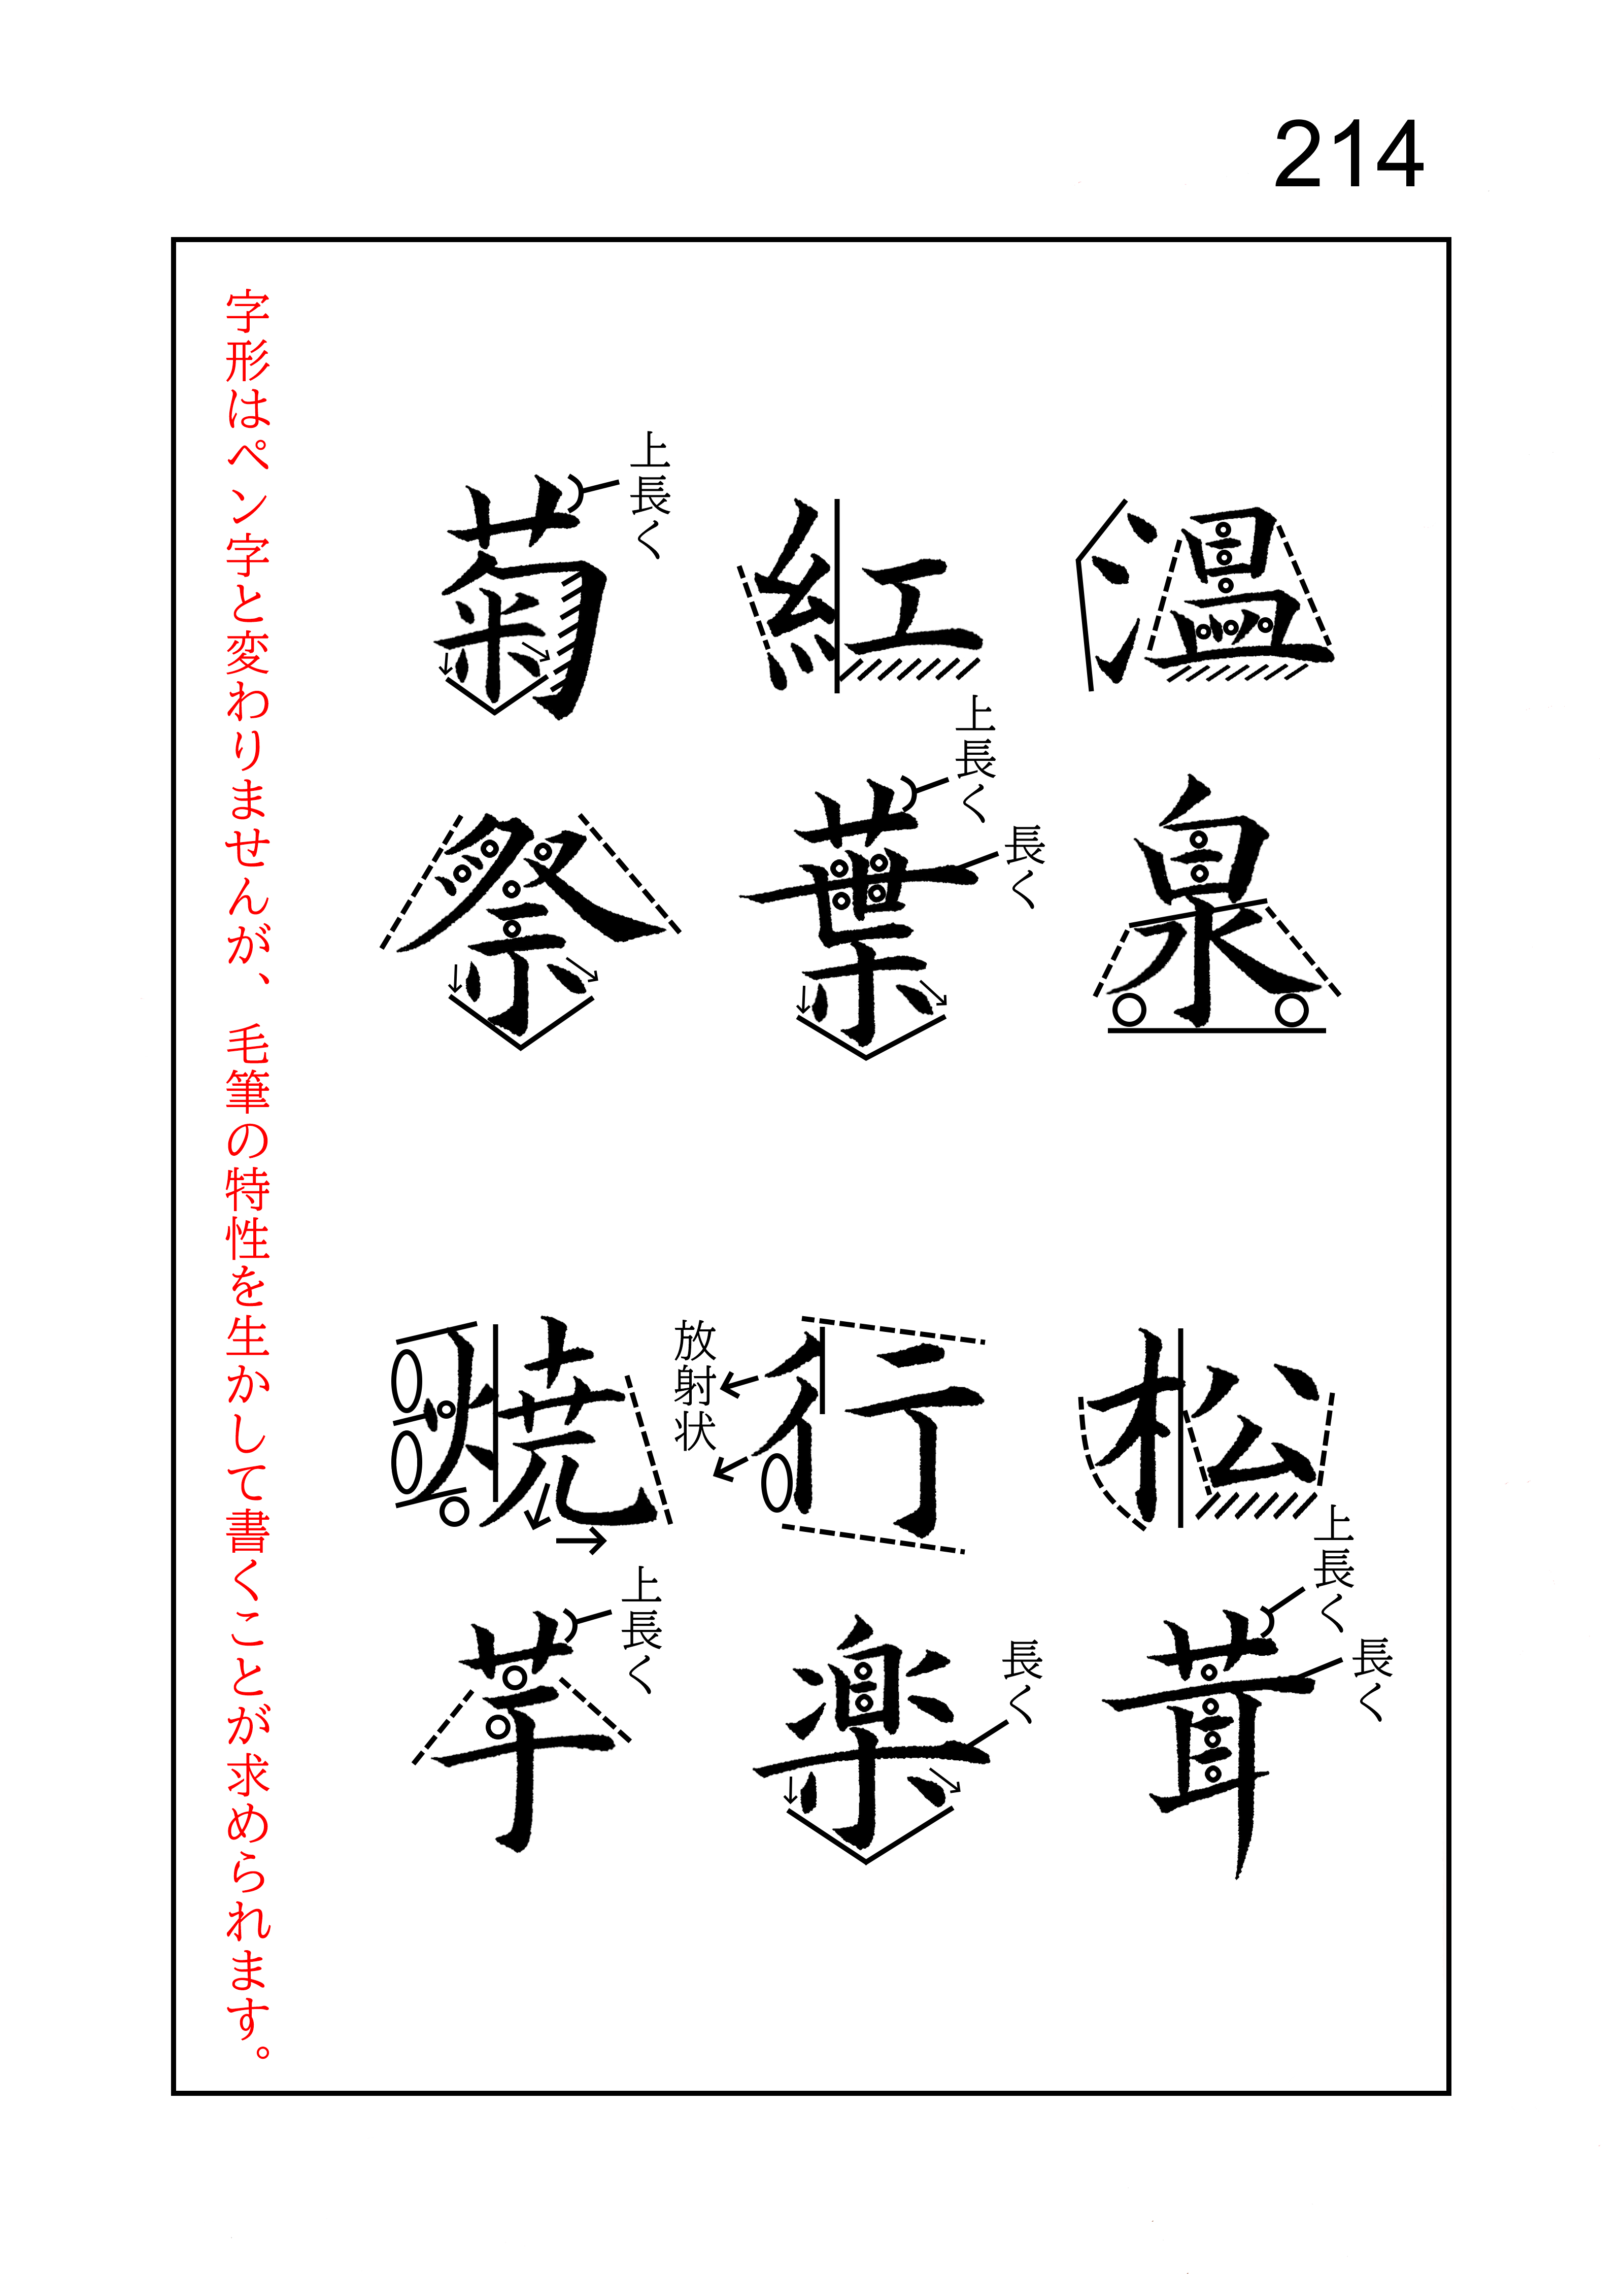 214
温泉
上長く
長く
紅葉
上長く
菊祭
松茸
上長く
長く
行楽
放射状
長く
焼芋
上長く
字形はペン字と変わりませんが、毛筆の特性を生かして書くことが求められます。